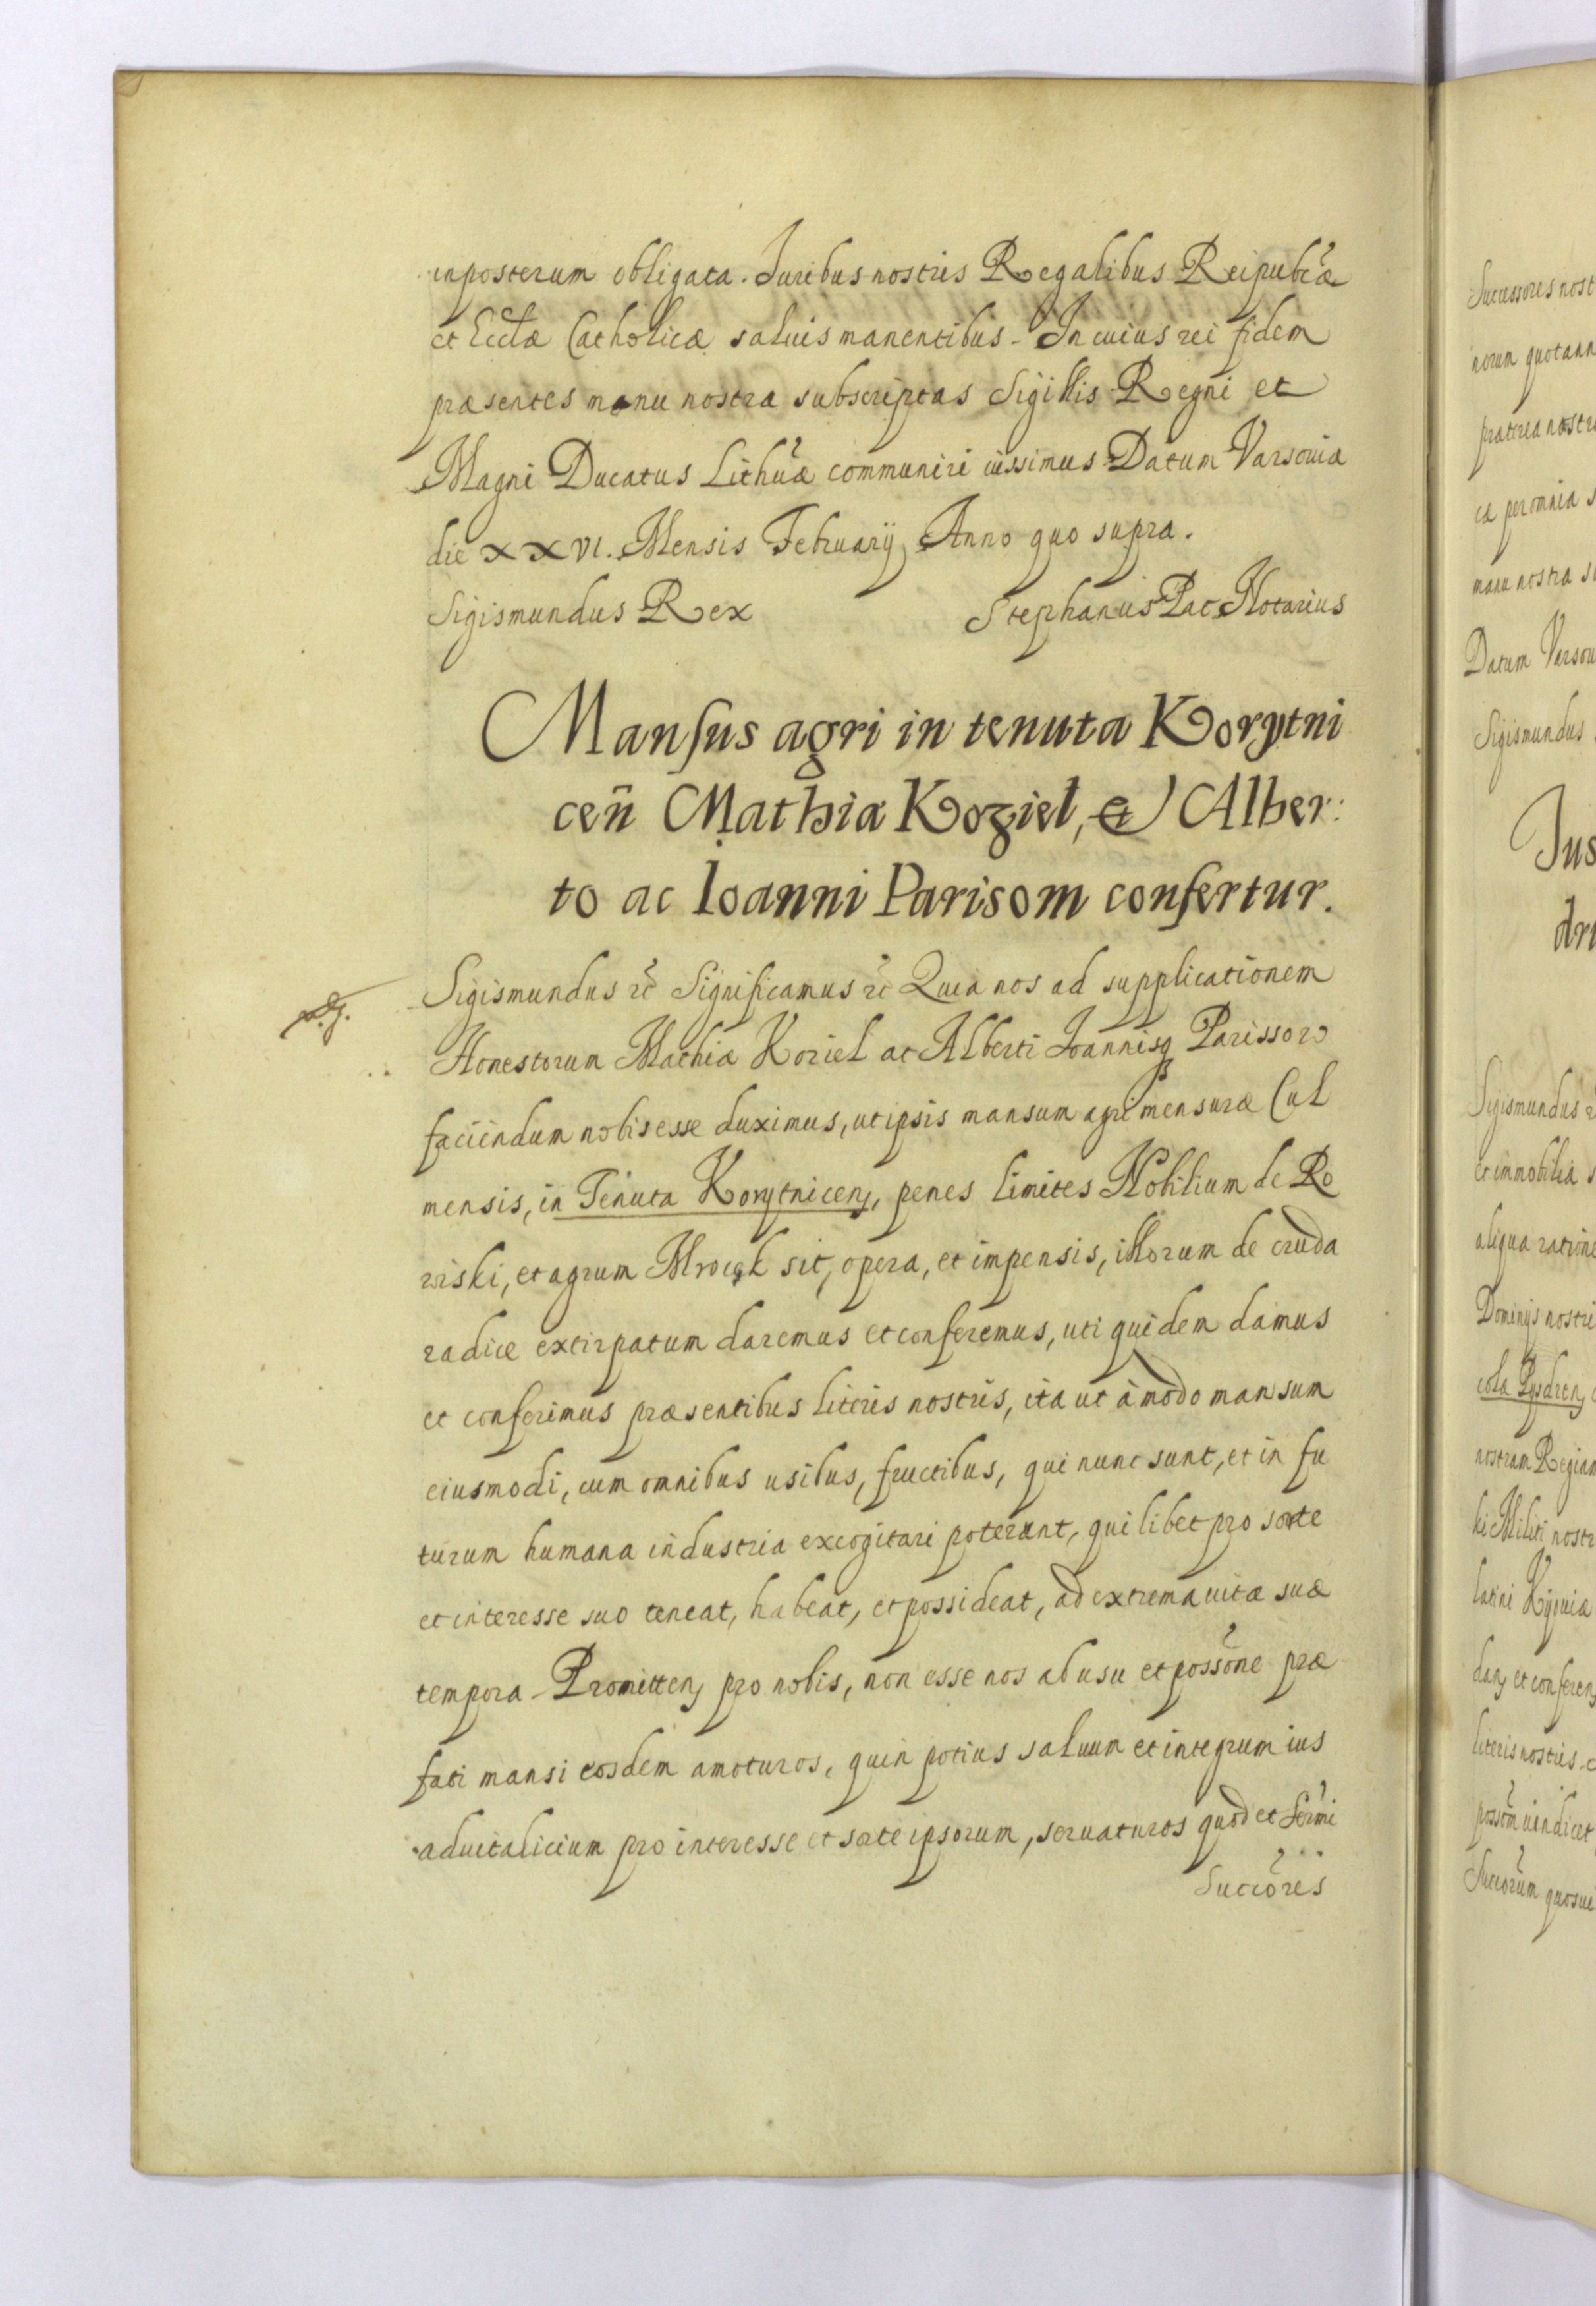 inposterum obligata. Iuribus nostris Regalibus Reipubcæ
et Ecclæ Catholicæ saluis manentibus - In cuius rei fidem
præsentes manu nostra subscriptas Sigillis Regni et
Magni Ducatus Lithuæ communiri iussimus Datum Varsouiæ
die XXVI. Mensis February Anno quo supra.
Sigismundus Rex Stephanus Pac Notarius
Mansus agri in tenuta Korytni
cen̄ Mathiæ Koziel, et Alber:
to ac Ioanni Parisom confertur.
Sigismundus etc̃ Significamus etc̃ Quia nos ad supplicationem
Honestorum Mathiæ Koziel ac Alberti Ioannisq Parissow
faciendum nobis esse duximus, ut ipsis mansum agri mensuræ Cul
mensis, in Tenuta Korytnicen, penes limites Nobilium de Ro
wiski, et agrum Mrocek sit, opera, et impensis, illorum de cruda
radice extirpatum daremus et conferemus, uti quidem damus
et conferimus præsentibus literis nostris, ita ut àmodo mansum
eiusmodi, cum omnibus usibus, fructibus, qui nunc sunt, et in fu
turum humana industria excogitari poterunt, quilibet pro sorte
et interesse suo teneat, habeat, et possideat, ad extrema uitæ suæ
tempora - Promitten pro nobis, non esse nos ab usu et possōne præ
fati mansi eosdem amoturos, quin potius saluum et integrum ius
aduitalicium pro interesse et sorte ipsorum, seruaturos quod et Sermi
Succōres
Successores nost
norum quotann
præterea nostr
ca per omnia s
manu nostra su
Datum Varsou
Sigismundus
Jus
dri
Sigismundus
et immobilia s
aliqua ratione
Dominijs nostri
cola Pysdren
nostram Regiam
ki Militi nostr
latini Kijouiæ
dan et conferen
literis nostris
possōm uindicet
Succorūm quosui